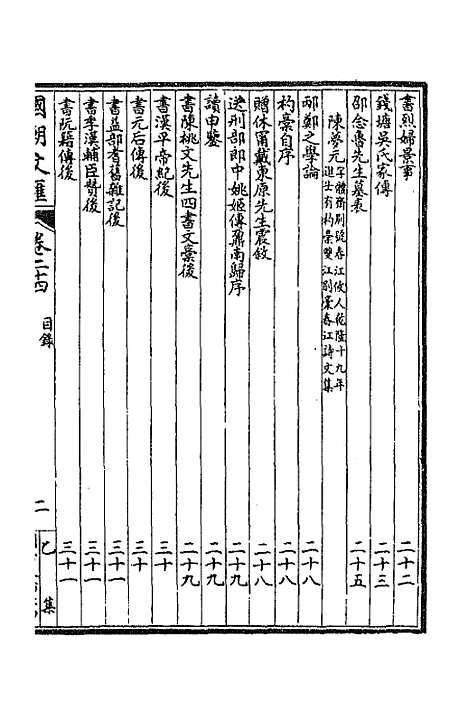 書烈婦景事 二十二
錢塘吳氏家傳 二十三
邵念魯先生墓表 二十五
陳夢元 字體齋別號春江攸人乾隆十九年進士有杓彙雙江別彙春江詩文集
邴鄭之學論 二十八
杓彙自序 二十八
贈休甯戴東原先生震敘 二十八
送刑部郎中姚姬傳鼐南歸序 二十九
讀申鑒 二十九
書陳桃文先生四書文彙後 二十九
書漢平帝紀後 三十
書元后傳後 三十
書益部耆舊雜記後 三十一
書季漢輔臣贊後 三十一
書阮籍傳後 三十一
國朝文匯 卷二十四 目錄 二 乙集